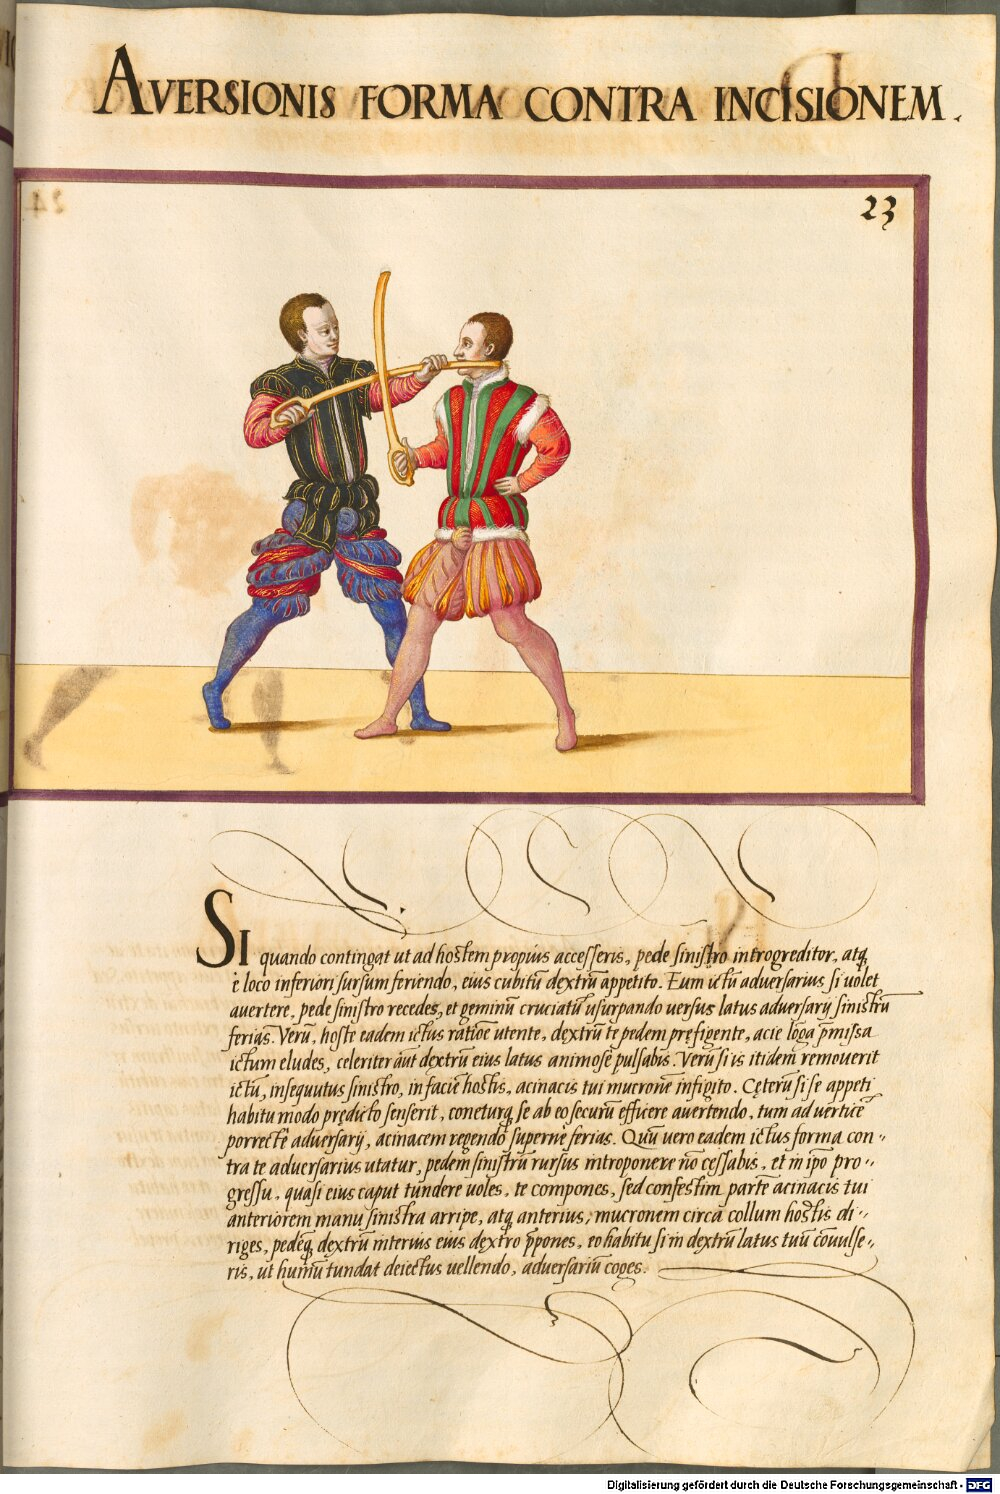 AVERSIONIS FORMA CONTRA INCISIONEM.
24
23
SI quando contingat ut ad hostem propius accesseris, pede sinistro introgreditor, atq̨
è loco inferiori sursum feriendo, eius cubitū dextrū appetito. Eum ictū adversarius si volet
avertere, pede sinistro recedes, et geminū cruciatū usurpando versus latus adversarij sinistrū
ferias. Verū, hoste eadem ictus ratiōe utente, dextrū te pedem pręfigente, acie lōga p̄missa
ictum eludes, celeriter aūt dextrū eius latus animosè pulsabis. Verū si is itidem removerit
ictū, insequutus sinistro, in faciē hostis, acinacis tui mucronē infigito. Cęterū si se appeti
habitu modo prędicto senserit, coneturq̨ se ab eo securū efficere avertendo, tum ad verticē
porrectè adversarij, acinacem regendo superne ferias. Quū vero eadem ictus forma con-
tra te adversarius utatur, pedem sinistrū rursus introponere nō cessabis, et in ipō pro-
gressu, quasi eius caput tundere voles, te compones, sed confestim partē acinacis tui
anteriorem manu sinistra arripe, atq̨ anterius, mucronem circa collum hostis di-
riges, pedeq̨ dextrū interius eius dextro p̄pones, eo habitu si in dextrū latus tuū cōvulse-
ris, ut humū tundat deiectus vellendo, adversariū coges.
Digitalisierung gefördert durch die Deutsche Forschungsgemeinschaft - DFG